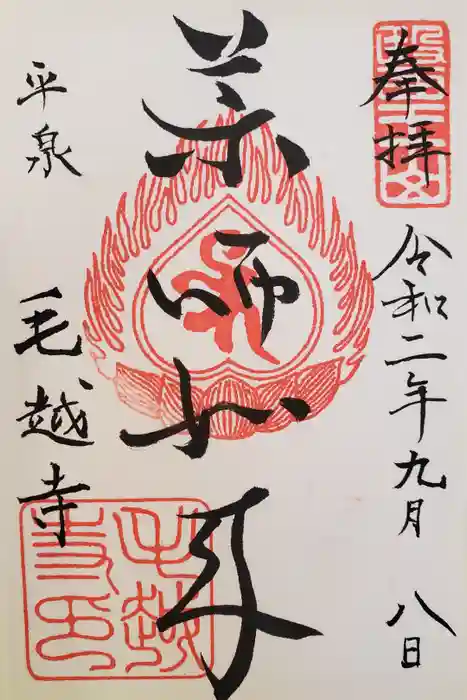 奉拝
令和二年九月八日
薬師如来
平泉
毛越寺
毛越寺印